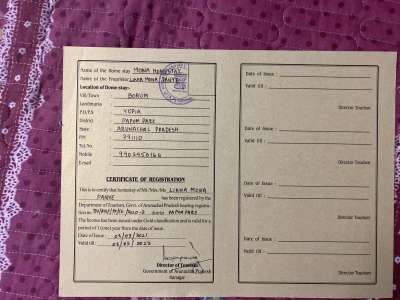 Name of the Home stay MONA HOMESTAY
Name of the Proprietor LIKHA MONA PANYE
Location of Home stay:-
Vill/Town BORUM
Landmarks
P.O/P.S YUPIA
District PAPUM PARE
State ARUNACHAL PRADESH
PIN 791110
Tel.No.
Mobile
E-mail
CERTIFICATE OF REGISTRATION
This is to certify that homestay of Mr./Mrs./Ms. LIKHA MONA
PANYE has been registered by the
Department of Tourism, Govt. of Arunachal Pradesh bearing registra-
tion no. distt: PAPUM PARE
The license has been issued under Gold classification and is valid for a
period of 1 (one) year from the date of issue.
Date of Issue :
Valid till :
Director of Tourism
Government of Arunachal Pradesh
Itanagar
Date of Issue :
Valid till :
Director Tourism
Date of Issue :
Valid till :
Director Tourism
Date of Issue :
Valid till :
Director Tourism
Date of Issue :
Valid till :
Director Tourism